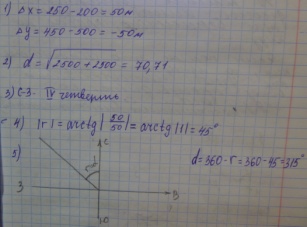 1) Δx = 250 - 200 = 50м
Δy = 450 - 500 = -50м
2) d = √2500 + 2500 = 70,71
3) С-З. IV четверть
4) |r| = arctg|50/50| = arctg|1| = 45°
5)
С
d=360-r=360-45=315°
З
В
Ю